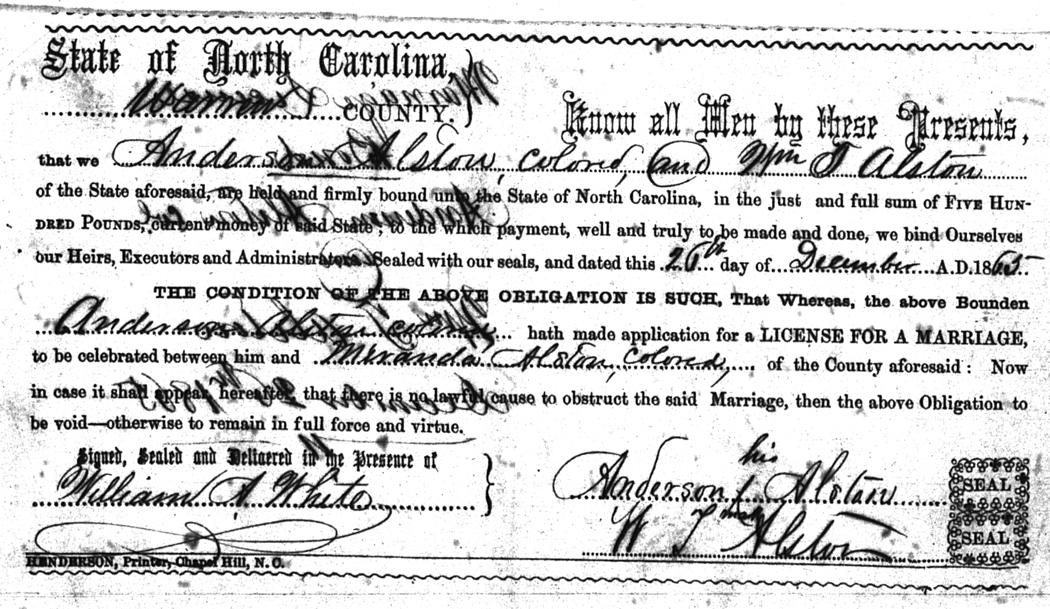 State of North Carolina,
Warren COUNTY.
Know all Men by these Presents,
that we Anderson Alston, colored, and Wm T Alston
of the State aforesaid, are held and firmly bound unto the State of North Carolina, in the just and full sum of FIVE HUN-
DRED POUNDS, current money of said State, to the which payment, well and truly to be made and done, we bind Ourselves
our Heirs, Executors and Administrators. Sealed with our seals, and dated this 26th day of December A.D. 1865.
THE CONDITION OF THE ABOVE OBLIGATION IS SUCH, That Whereas, the above Bounden
Anderson Alston colored hath made application for a LICENSE FOR A MARRIAGE,
to be celebrated between him and Miranda Alston, colored, of the County aforesaid: Now
in case it shall appear, hereafter, that there is no lawful cause to obstruct the said Marriage, then the above Obligation to
be void—otherwise to remain in full force and virtue.
Signed, Sealed and Delivered in the Presence of
William A White
his
Anderson Alston
SEAL
W T Alston
SEAL
HENDERSON, Printer, Chapel Hill, N. C.